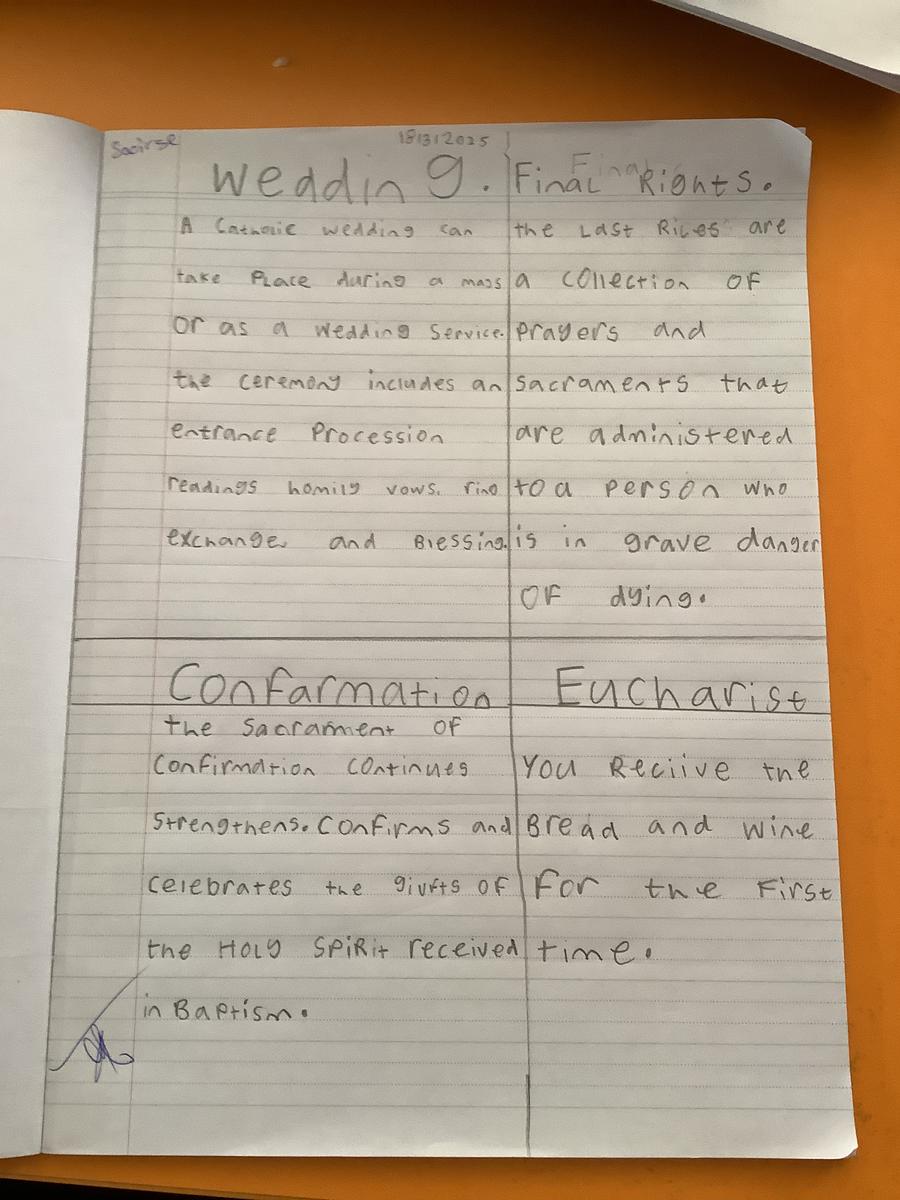 Saoirse
18/3/2025
Wedding.
A Catholic wedding can
take Place during a mass
or as a wedding Service.
the ceremony includes an
entrance Procession
readings homily vows. ring
exchange and Blessing.
Final Rights.
the Last Rites are
a collection OF
Prayers and
Sacraments that
are administered
to a person who
is in grave danger
OF dying.
Confarmation
the Sacrament OF
Confirmation continues
Strengthens. Confirms and
celebrates the givfts OF
the HOLY SPiRit received
in Baptism.
Eucharist
You Reciive the
Bread and wine
For the First
time.